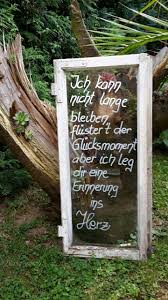 Ich kann
nicht lange
bleiben,
flüstert der
Glücksmoment
aber ich leg
dir eine
Erinnerung
ins
Herz